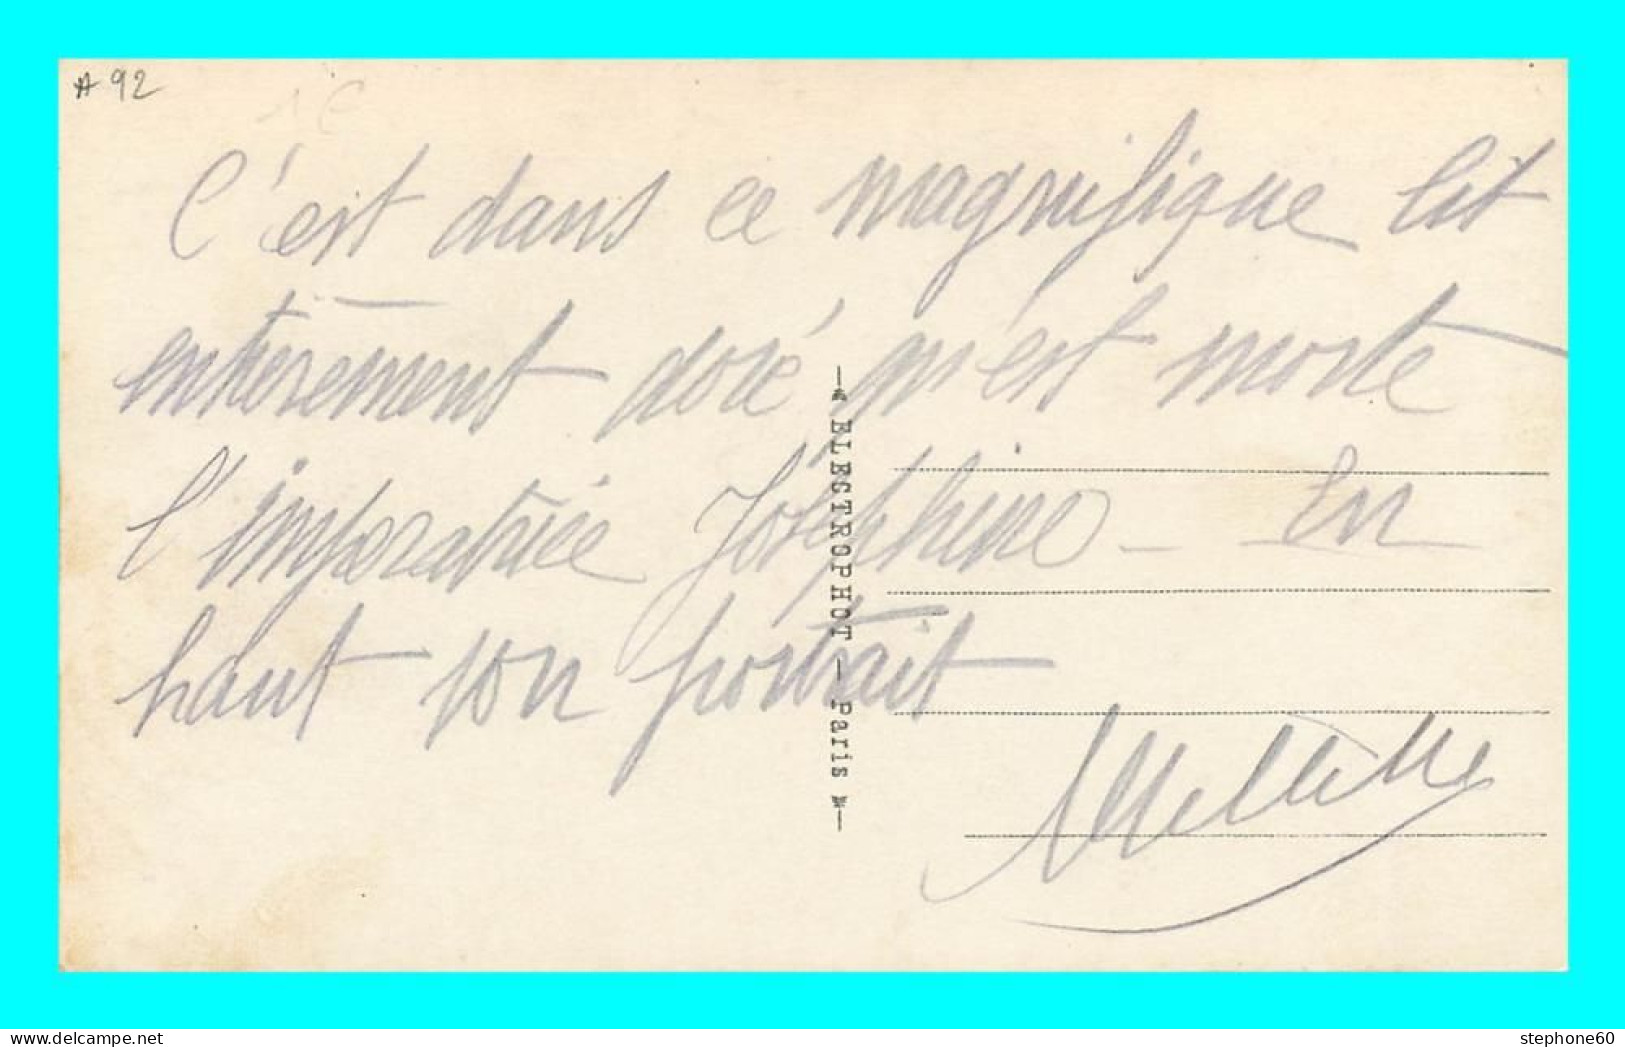 A 92
1€
C'est dans ce magnifique lit
entièrement doré qu'est morte
l'impératrice Joséphine — En
haut son portrait
ELECTROPHOT — Paris
stephone60